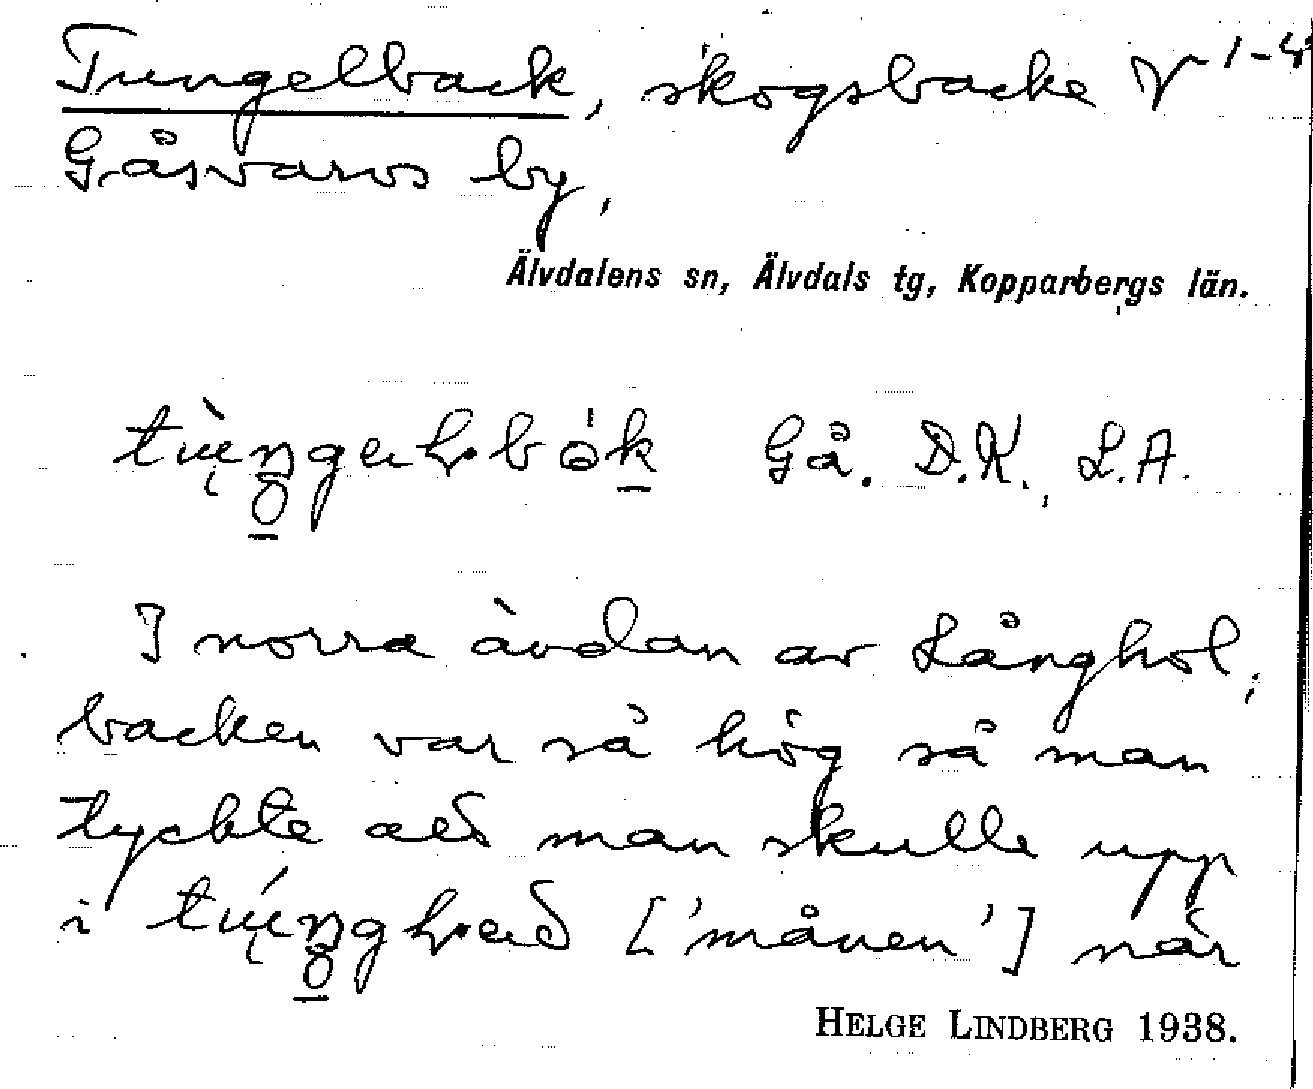 Tungelback, skogsbacke V 1-4
Gåsvarvs by,
Älvdalens sn, Älvdals tg, Kopparbergs län.
Gå. D.K., L.A.
I norra ändan av Långhol,
backen var så hög så man
tyckte att man skulle upp
i ['månen'] när
HELGE LINDBERG 1938.